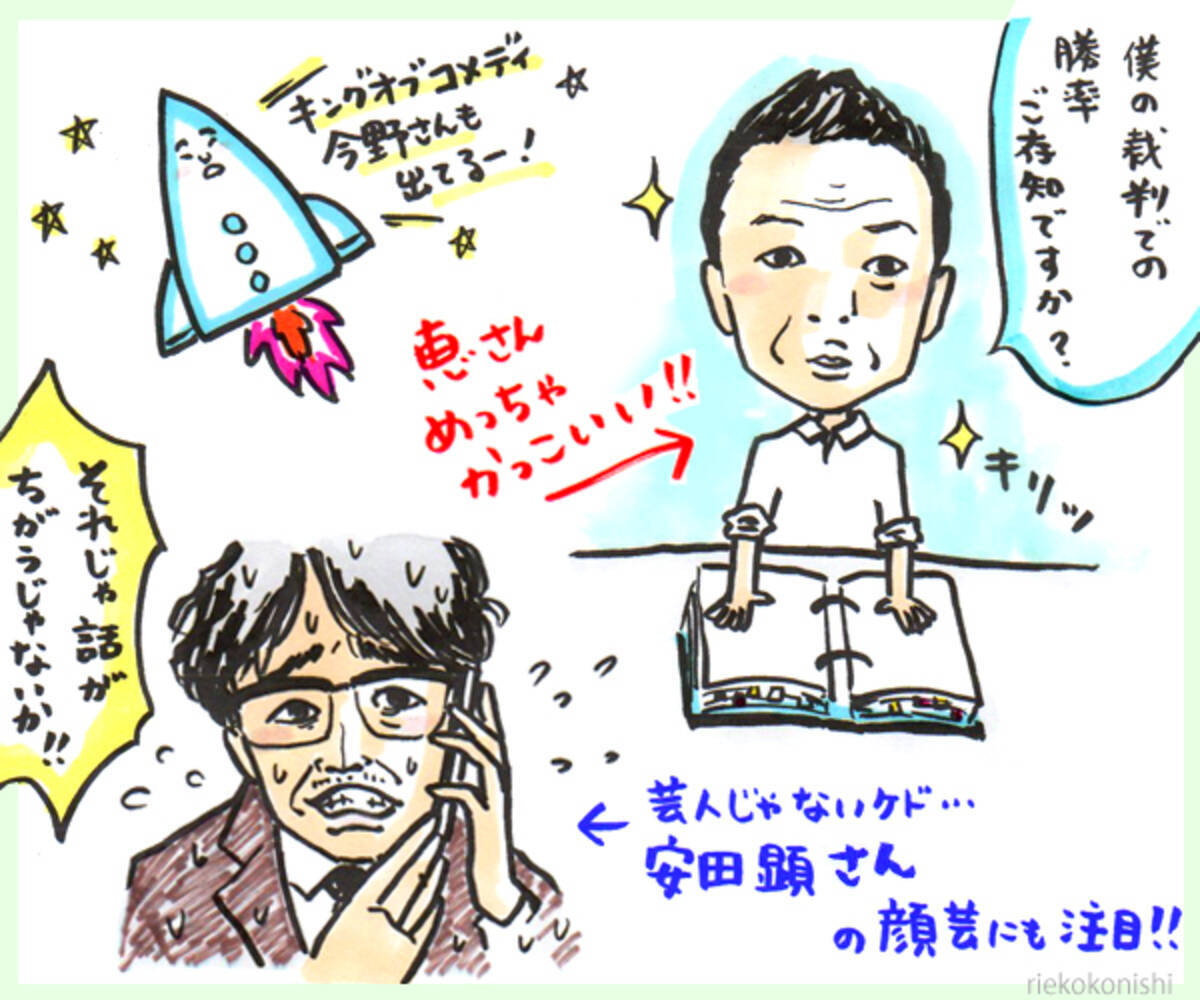 僕の裁判での
勝率
ご存知ですか?
キングオブコメディ
今野さんも
出てるー!
恵さん
めっちゃ
かっこいい!!
キリッ
それじゃ話が
ちがうじゃないか!!
芸人じゃないケド…
安田顕さん
の顔芸にも注目!!
riekokonishi